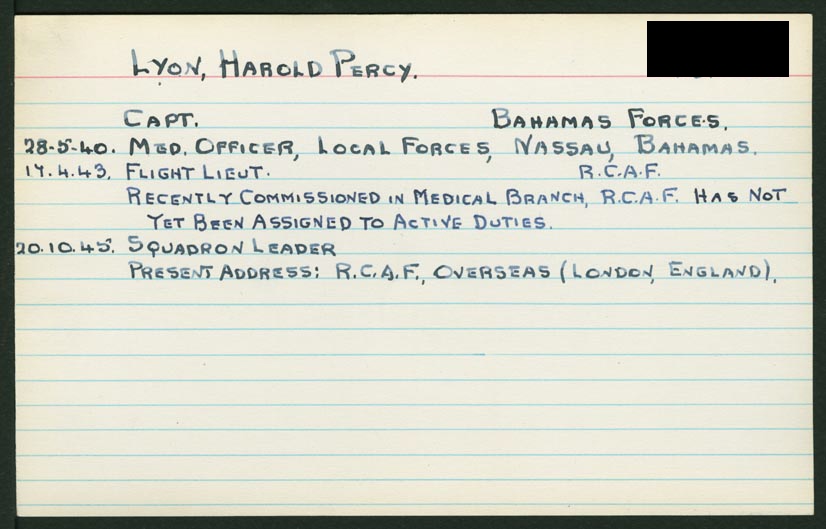 LYON, HAROLD PERCY.
CAPT. BAHAMAS FORCES.
28-5-40. MED. OFFICER, LOCAL FORCES, NASSAU, BAHAMAS.
17.4.43. FLIGHT LIEUT. R.C.A.F.
RECENTLY COMMISSIONED IN MEDICAL BRANCH, R.C.A.F. HAS NOT
YET BEEN ASSIGNED TO ACTIVE DUTIES.
20.10.45. SQUADRON LEADER
PRESENT ADDRESS: R.C.A.F., OVERSEAS (LONDON, ENGLAND).